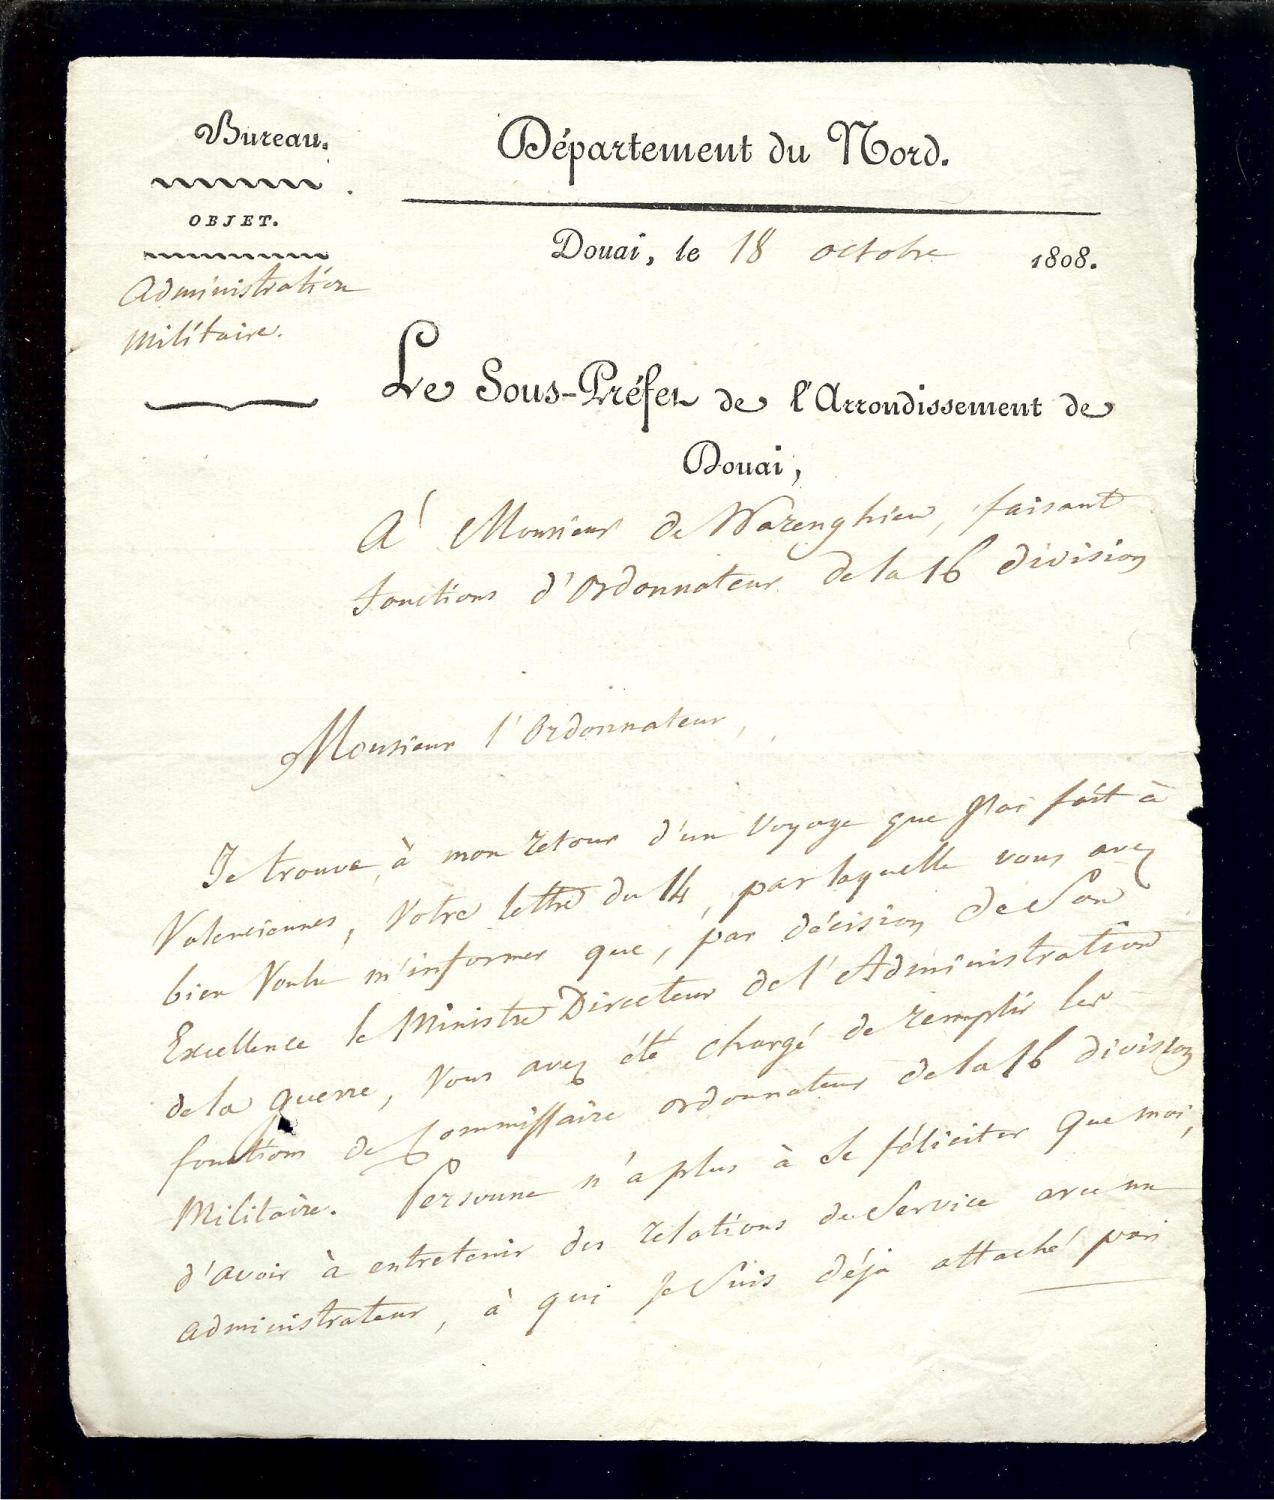 Bureau.
OBJET.
Administration
Militaire.
Département du Nord.
Douai, le 18 octobre 1808.
Le Sous-Préfet de l'Arrondissement de
Douai,
A Monsieur de Warenghien, faisant
fonctions d'Ordonnateur de la 16 division
Monsieur l'Ordonnateur,
Je trouve, à mon retour d'un voyage que j'ai fait à
Valenciennes, votre lettre du 14, par laquelle vous avez
bien voulu m'informer que, par décision de Son
Excellence le Ministre Directeur de l'Administration
de la guerre, vous avez été chargé de remplir les
fonctions de Commissaire ordonnateur de la 16 division
Militaire. Personne n'a plus à se féliciter que moi,
d'avoir à entretenir des relations de Service avec un
administrateur, à qui je suis déjà attaché par